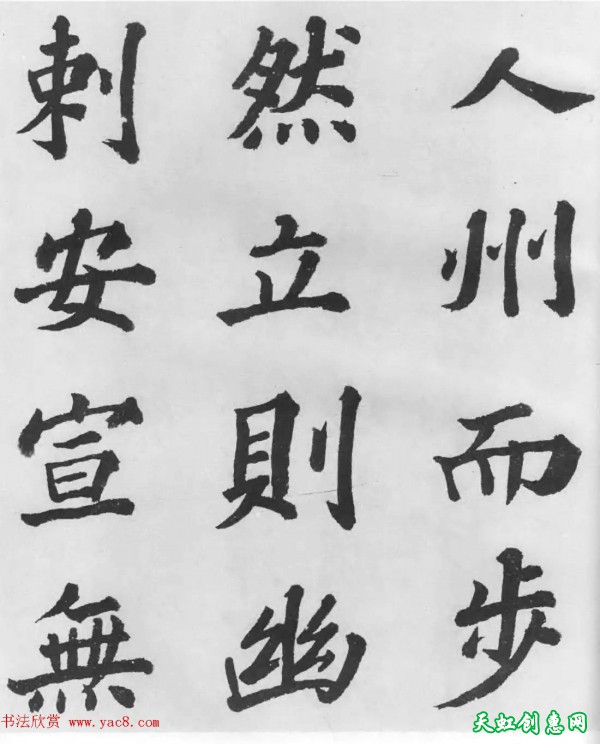 人州而步
然立則幽
刺安宣無
书法欣赏 www.yac8.com
天虹创惠网